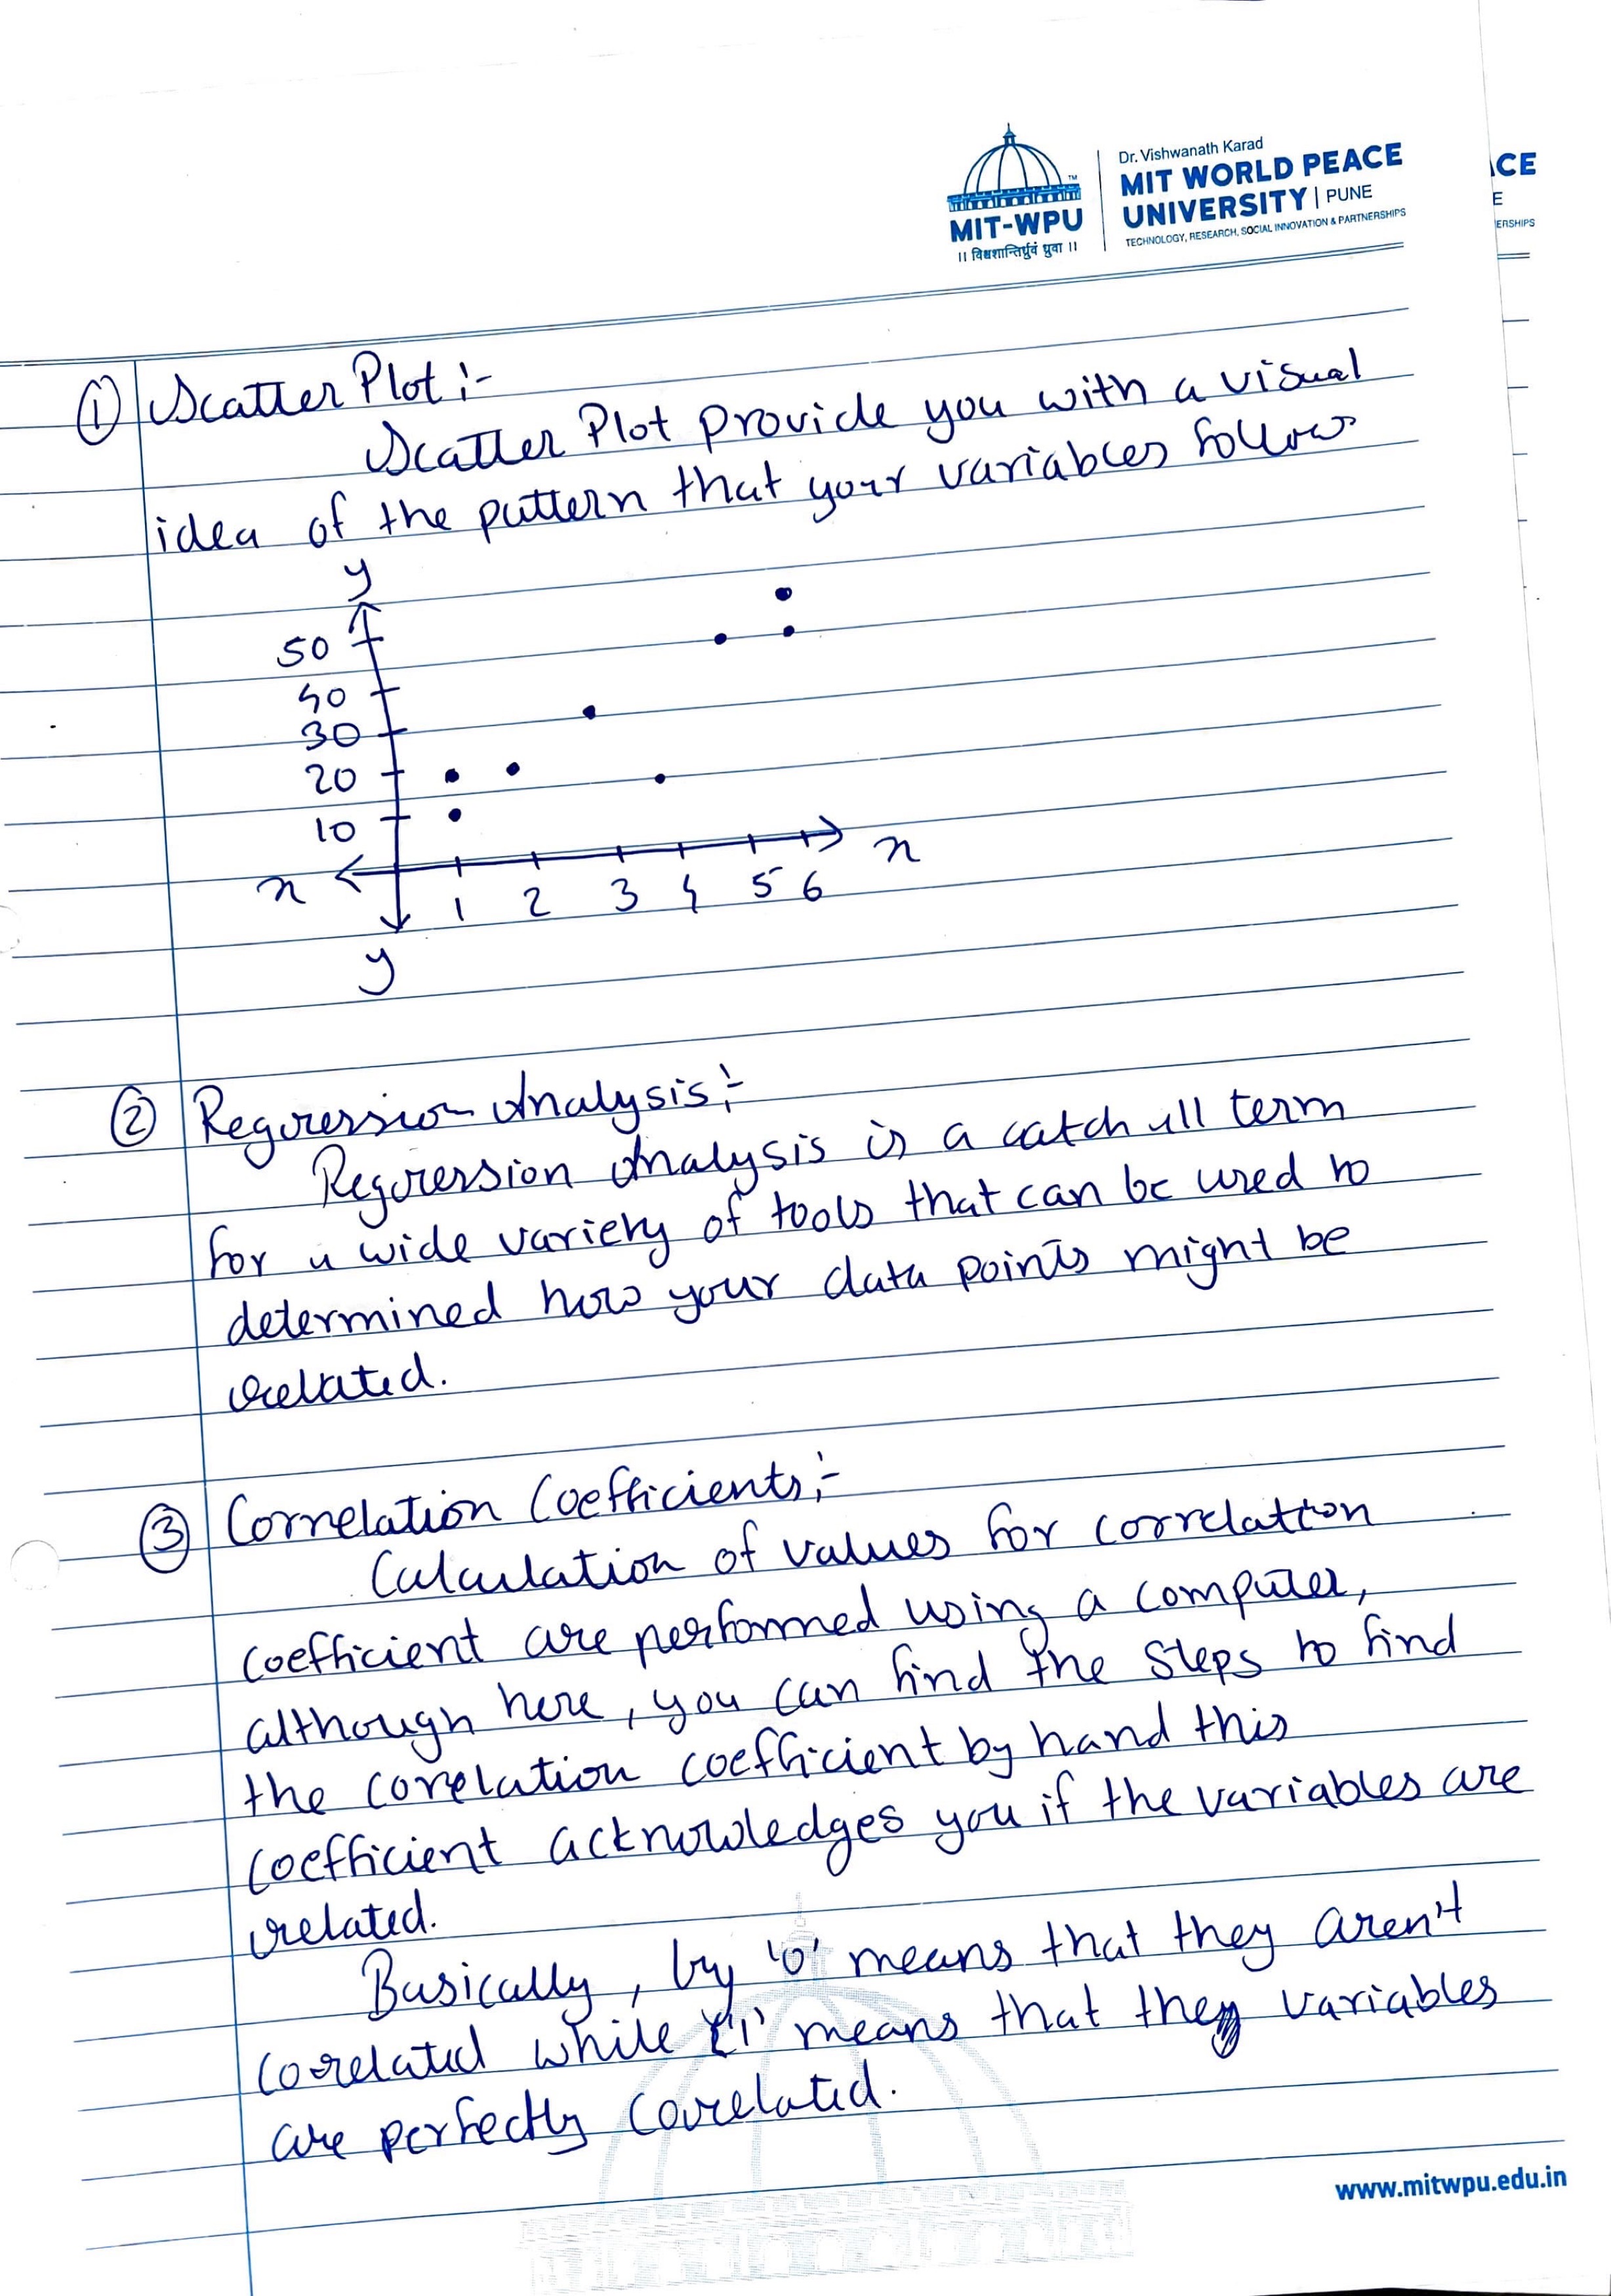 Dr. Vishwanath Karad
MIT WORLD PEACE
UNIVERSITY | PUNE
TECHNOLOGY, RESEARCH, SOCIAL INNOVATION & PARTNERSHIPS
TM
MIT-WPU
॥ विश्वशान्तिर्ध्रुवं ध्रुवा ॥
CE
E
ERSHIPS
① Scatter Plot :-
Scatter Plot provide you with a visual
idea of the pattern that your variables follow
y
50
40
30
20
10
x x
1 2 3 4 5 6
y
② Regression Analysis :-
Regression Analysis is a catch all term
for a wide variety of tools that can be used to
determined how your data points might be
related.
③ Correlation Coefficients :-
Calculation of values for correlation
coefficient are performed using a computer,
although here, you can find the steps to find
the corelation coefficient by hand this
coefficient acknowledges you if the variables are
related.
Basically, by '0' means that they aren't
corelated while '1' means that they variables
are perfectly correlated.
www.mitwpu.edu.in